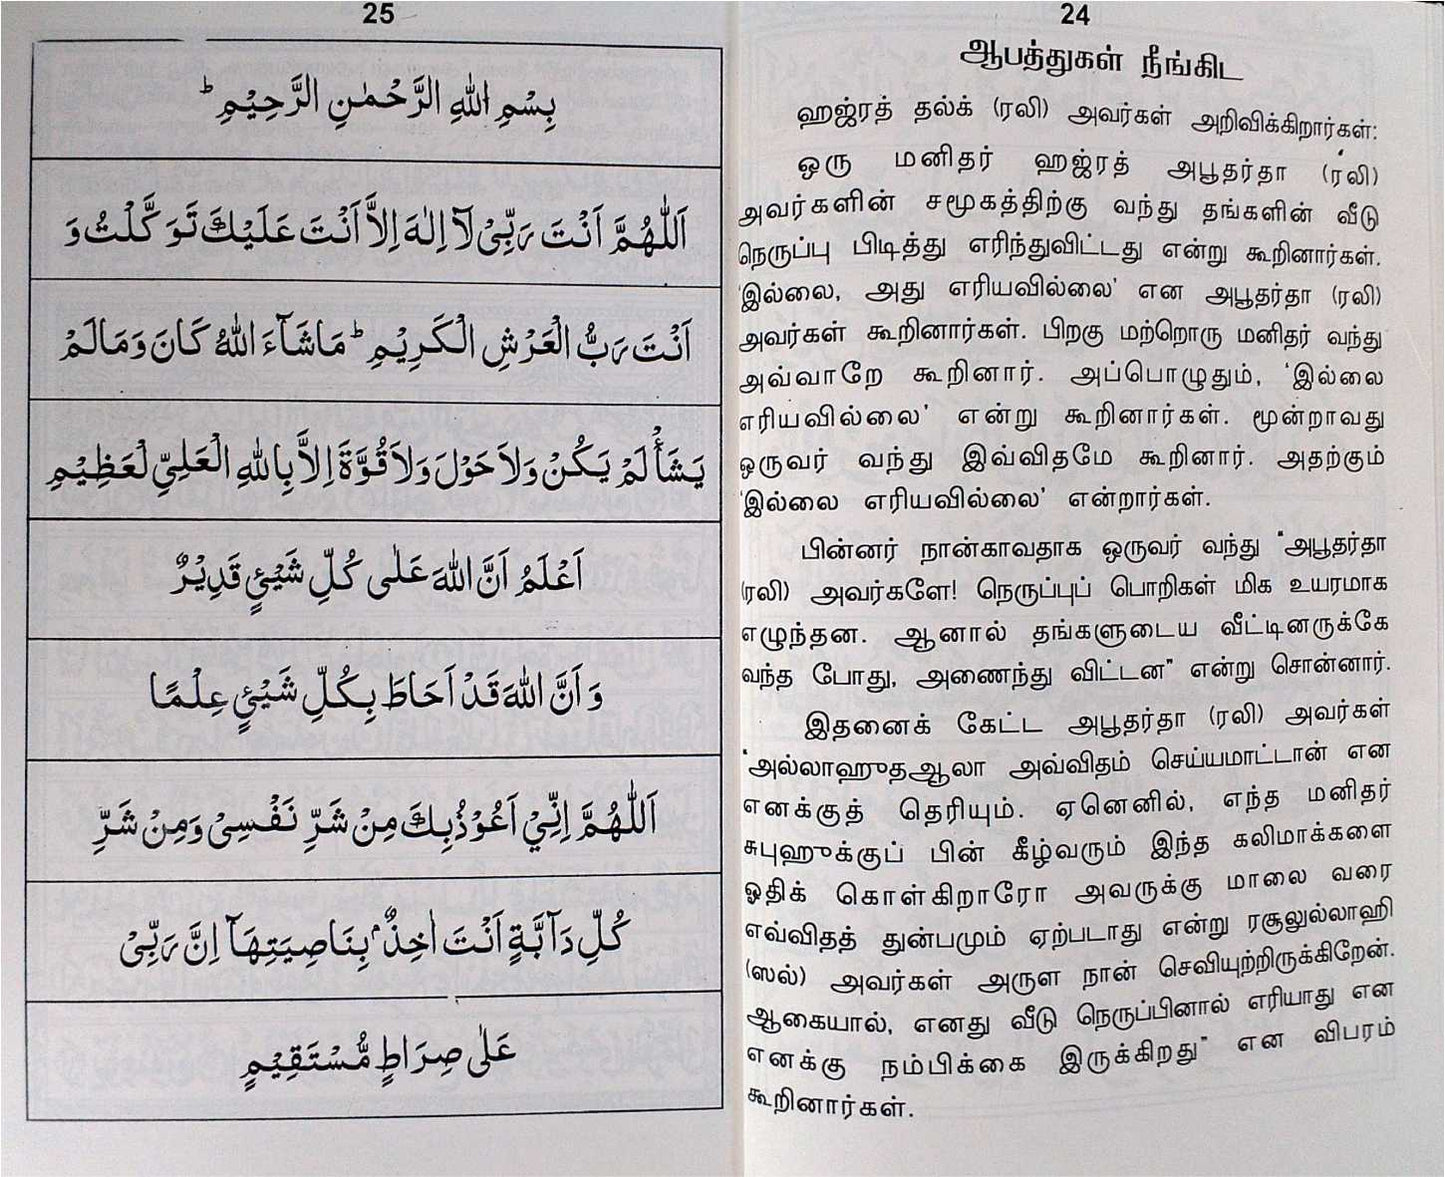 24
ஆபத்துகள் நீங்கிட
ஹஜ்ரத் தல்க் (ரலி) அவர்கள் அறிவிக்கிறார்கள்:
ஒரு மனிதர் ஹஜ்ரத் அபூதர்தா (ரலி)
அவர்களின் சமூகத்திற்கு வந்து தங்களின் வீடு
நெருப்பு பிடித்து எரிந்துவிட்டது என்று கூறினார்கள்.
'இல்லை, அது எரியவில்லை' என அபூதர்தா (ரலி)
அவர்கள் கூறினார்கள். பிறகு மற்றொரு மனிதர் வந்து
அவ்வாறே கூறினார். அப்பொழுதும், 'இல்லை
எரியவில்லை' என்று கூறினார்கள். மூன்றாவது
ஒருவர் வந்து இவ்விதமே கூறினார். அதற்கும்
'இல்லை எரியவில்லை' என்றார்கள்.
பின்னர் நான்காவதாக ஒருவர் வந்து "அபூதர்தா
(ரலி) அவர்களே! நெருப்புப் பொறிகள் மிக உயரமாக
எழுந்தன. ஆனால் தங்களுடைய வீட்டினருக்கே
வந்த போது, அணைந்து விட்டன" என்று சொன்னார்.
இதனைக் கேட்ட அபூதர்தா (ரலி) அவர்கள்
"அல்லாஹுதஆலா அவ்விதம் செய்யமாட்டான் என
எனக்குத் தெரியும். ஏனெனில், எந்த மனிதர்
சுபுஹுக்குப் பின் கீழ்வரும் இந்த கலிமாக்களை
ஓதிக் கொள்கிறாரோ அவருக்கு மாலை வரை
எவ்விதத் துன்பமும் ஏற்படாது என்று ரசூலுல்லாஹி
(ஸல்) அவர்கள் அருள நான் செவியுற்றிருக்கிறேன்.
ஆகையால், எனது வீடு நெருப்பினால் எரியாது என
எனக்கு நம்பிக்கை இருக்கிறது" என விபரம்
கூறினார்கள்.
25
بِسْمِ اللهِ الرَّحْمٰنِ الرَّحِيْمِ ؕ
اَللّٰهُمَّ اَنْتَ رَبِّيْ لَآ اِلٰهَ اِلاَّ اَنْتَ عَلَيْكَ تَوَكَّلْتُ وَ
اَنْتَ رَبُّ الْعَرْشِ الْكَرِيْمِ ؕ مَاشَآءَ اللهُ كَانَ وَمَالَمْ
يَشَأْ لَمْ يَكُنْ وَلاَحَوْلَ وَلاَقُوَّةَ اِلاَّ بِاللهِ الْعَلِيِّ لْعَظِيْمِ
اَعْلَمُ اَنَّ اللهَ عَلٰى كُلِّ شَيْئٍ قَدِيْرٌ
وَ اَنَّ اللهَ قَدْ اَحَاطَ بِكُلِّ شَيْئٍ عِلْمًا
اَللّٰهُمَّ اِنِّيْ اَعُوْذُبِكَ مِنْ شَرِّ نَفْسِيْ وَمِنْ شَرِّ
كُلِّ دَآبَّةٍ اَنْتَ اٰخِذٌ ۢ بِنَاصِيَتِهَآ اِنَّ رَبِّيْ
عَلٰى صِرَاطٍ مُّسْتَقِيْمٍ